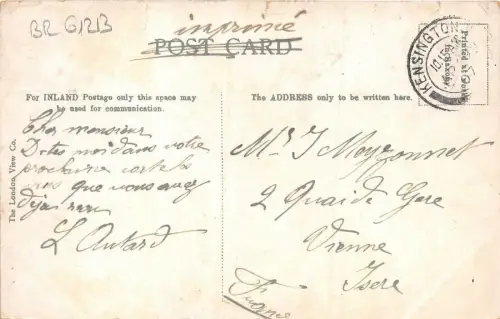 BR G12B
imprimé
POST CARD
KENSINGTON
Printed at
For INLAND Postage only this space may
be used for communication.
The ADDRESS only to be written here.
The London View Co.
Cher monsieur
Dites moi dans votre
prochaine carte les
que vous avez
déjà
L Autard
Mr J Meyzonnet
2 Quai de Gere
Vienne
Isere
France